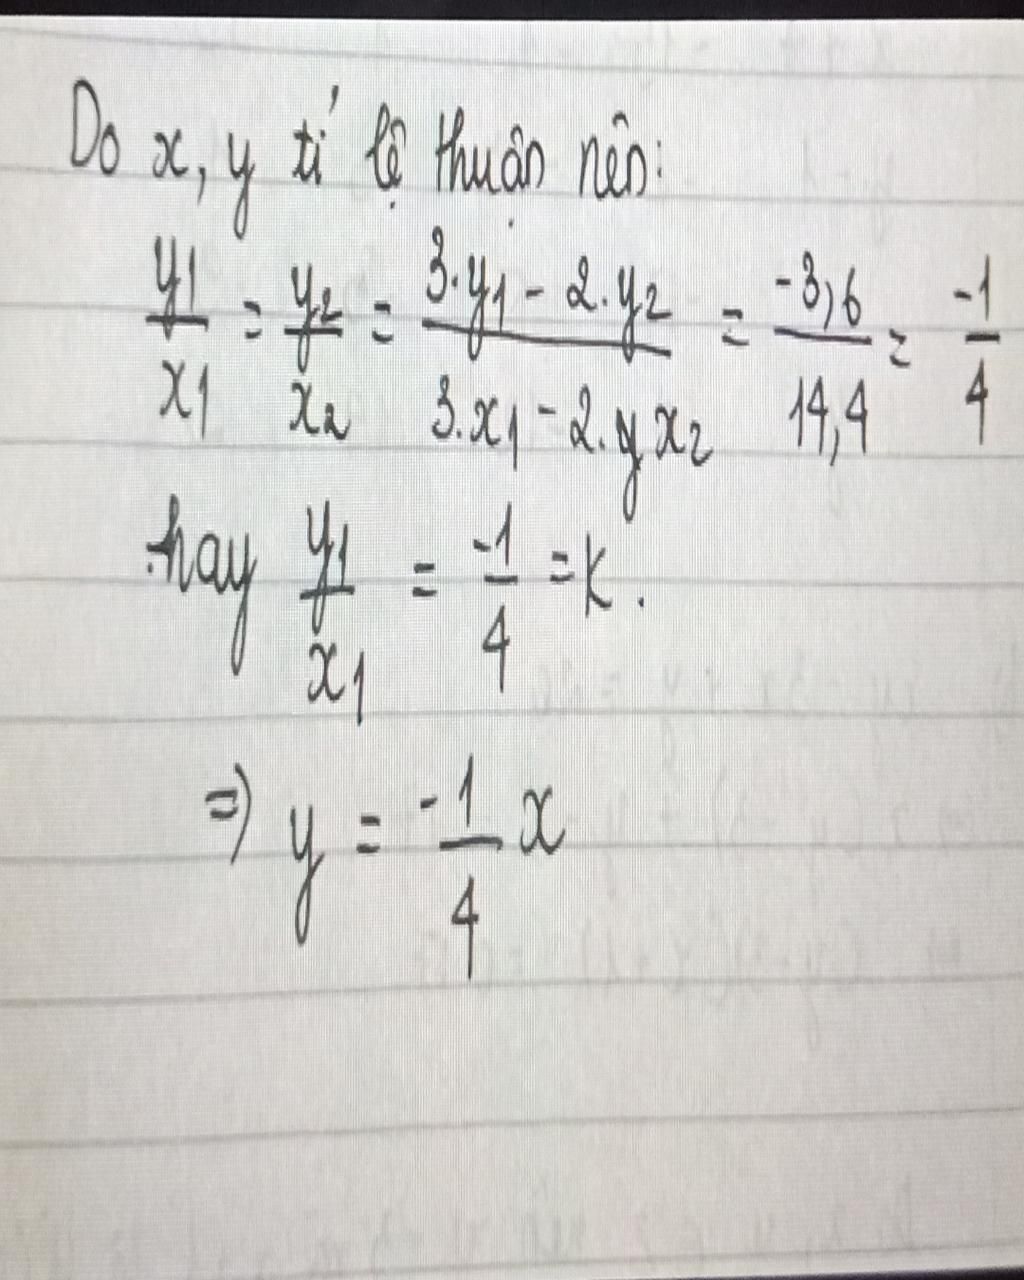 Do x, y tỉ lệ thuận nên:
y1/x1 = y2/x2 = 3.y1 - 2.y2/3.x1 - 2.y x2 = -3,6/14,4 = -1/4
hay y1/x1 = -1/4 = k.
=> y = -1/4 x